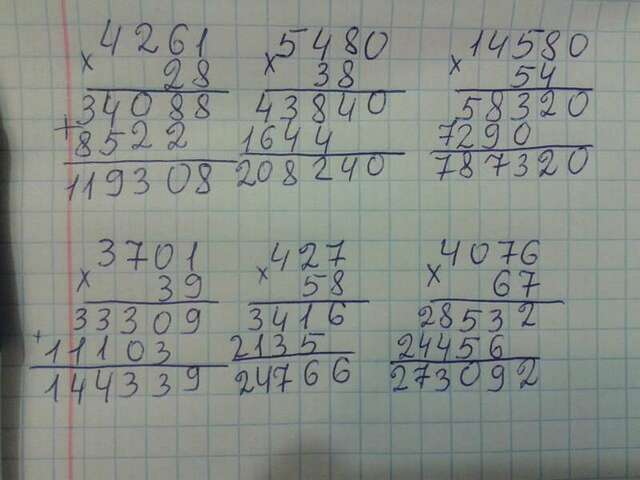 4261 5480 14580
× 28 × 38 × 54
34088 43840 58320
+ 8522 1644 7290
119308 208240 787320
3701 427 4076
× 39 × 58 × 67
33309 3416 28532
+ 11103 2135 24456
144339 24766 273092